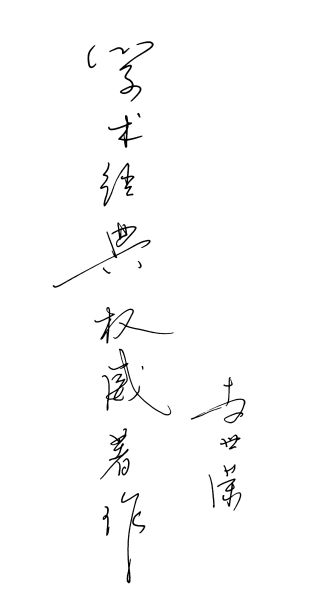 学术经典权威著作
李世荣